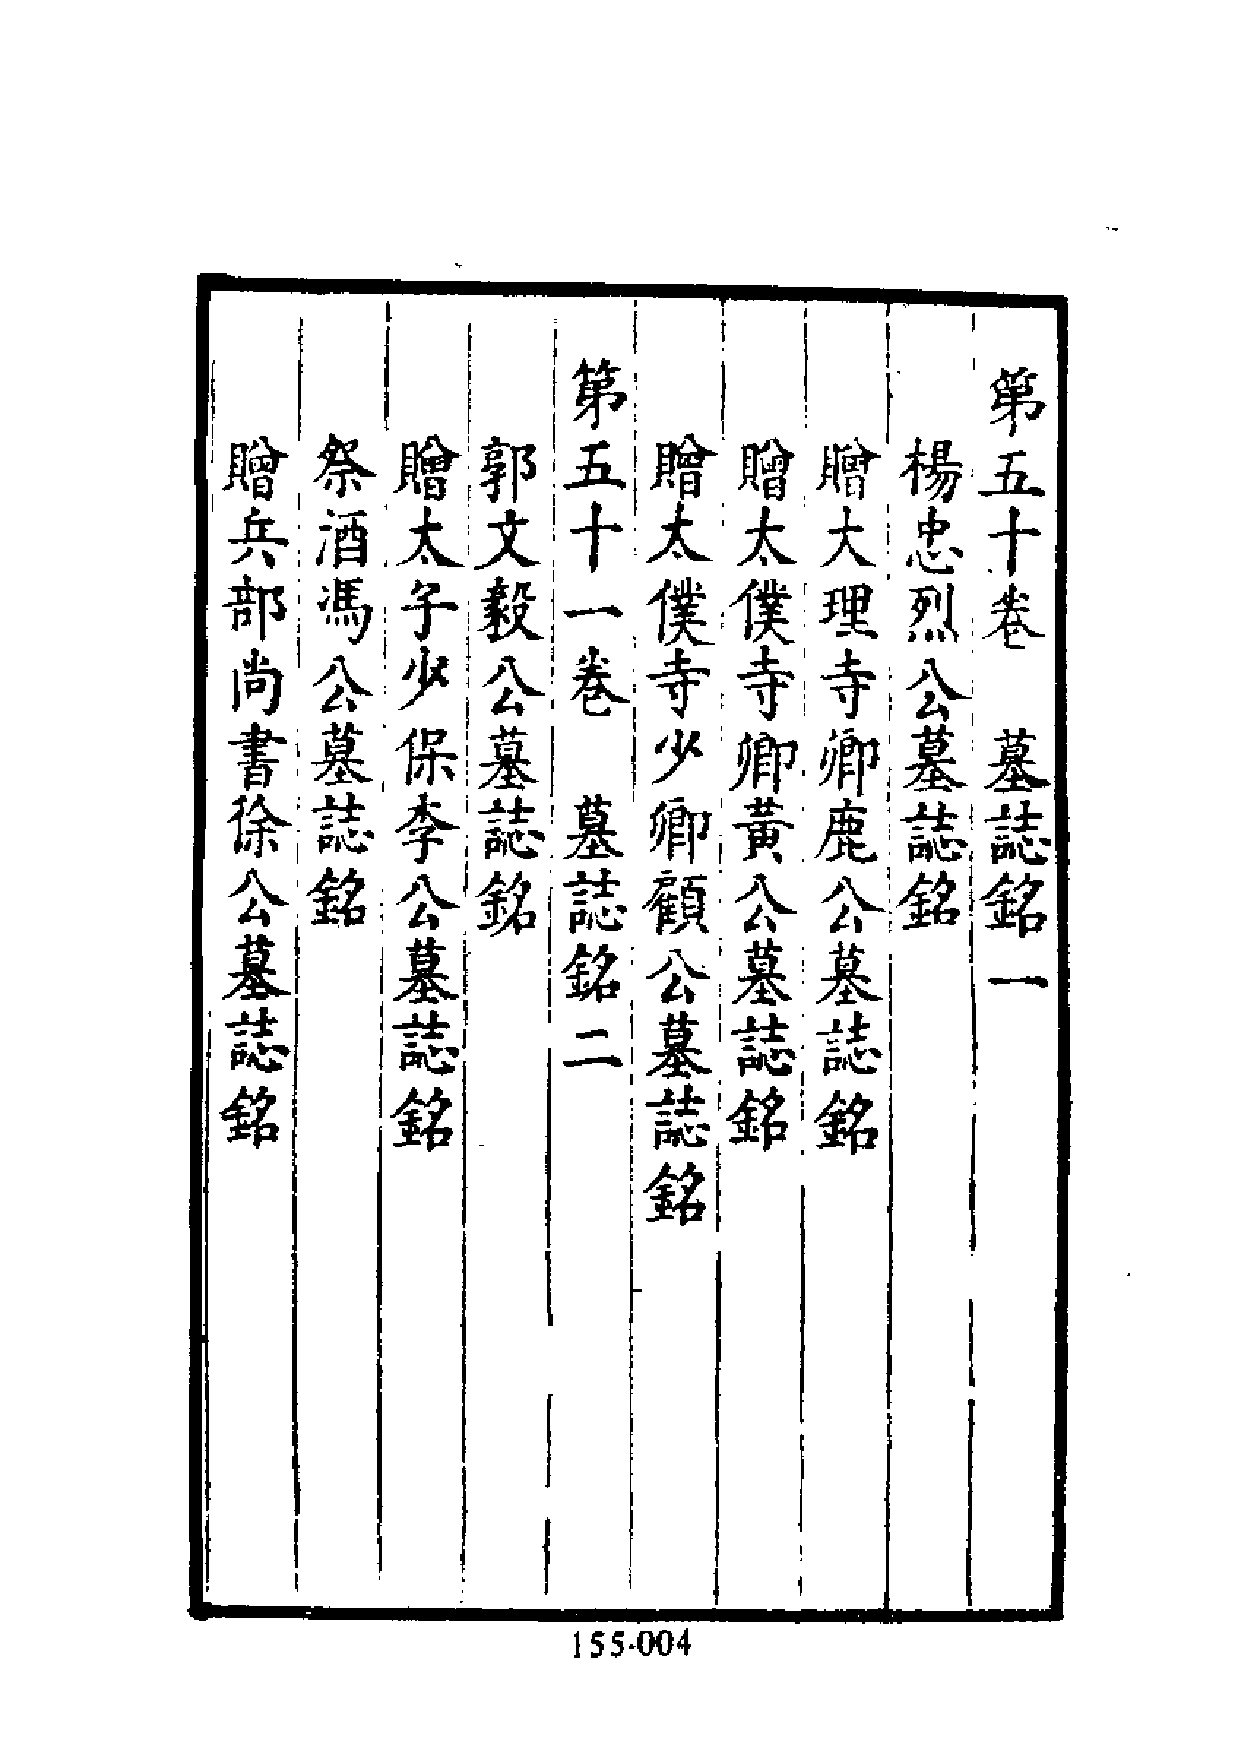 第五十卷　墓誌銘一
楊忠烈公墓誌銘
贈大理寺卿鹿公墓誌銘
贈太僕寺卿黃公墓誌銘
贈太僕寺少卿顧公墓誌銘
第五十一卷　墓誌銘二
郭文毅公墓誌銘
贈太子少保李公墓誌銘
祭酒馮公墓誌銘
贈兵部尚書徐公墓誌銘
155-004